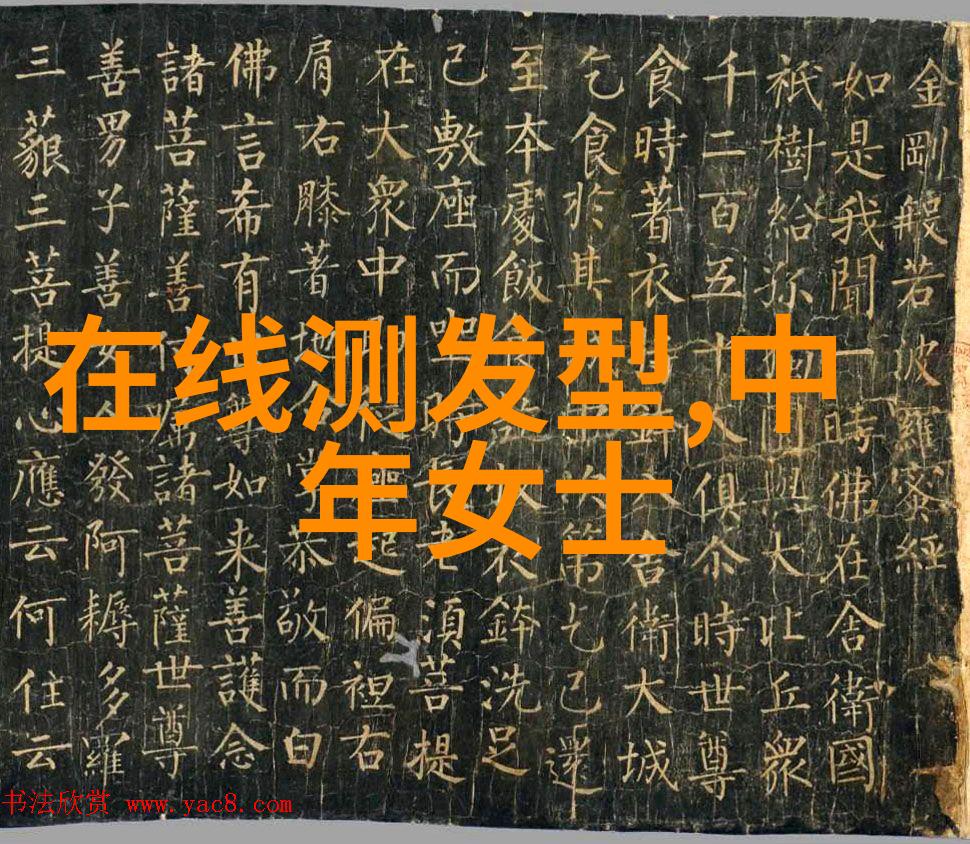 金剛般若波羅蜜經
如是我聞一時佛在舍衛國
祇樹給孤園與大比丘眾
千二百五十人俱尒時世尊
食時著衣入舍衛大城
乞食於其次第乞已還
至本處飯食衣鉢洗足
已敷座而坐時長老須菩提
在大眾中即座起偏袒右
肩右膝著地合掌恭敬而白
佛言希有尊如来善護念
諸菩薩善付囑諸菩薩世尊
善男子善女人發阿耨多羅
三藐三菩提心應云何住云
在线测发型,中
年女士
书法欣赏 www.yac8.com